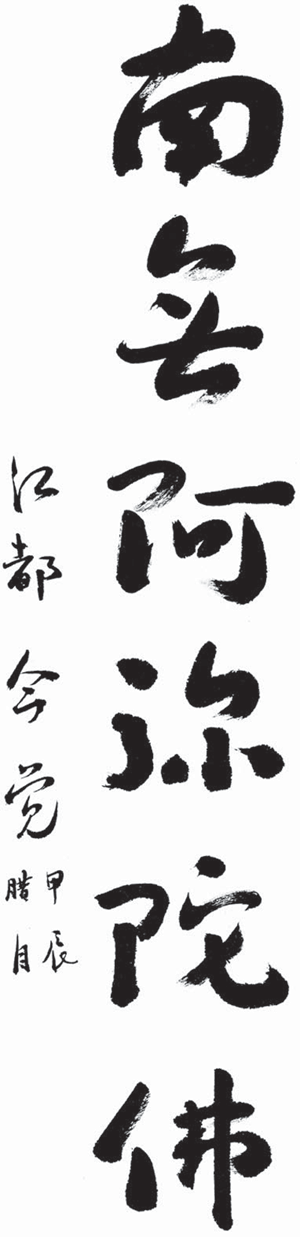 南無阿弥陀佛
江都 令觉
甲辰
腊月